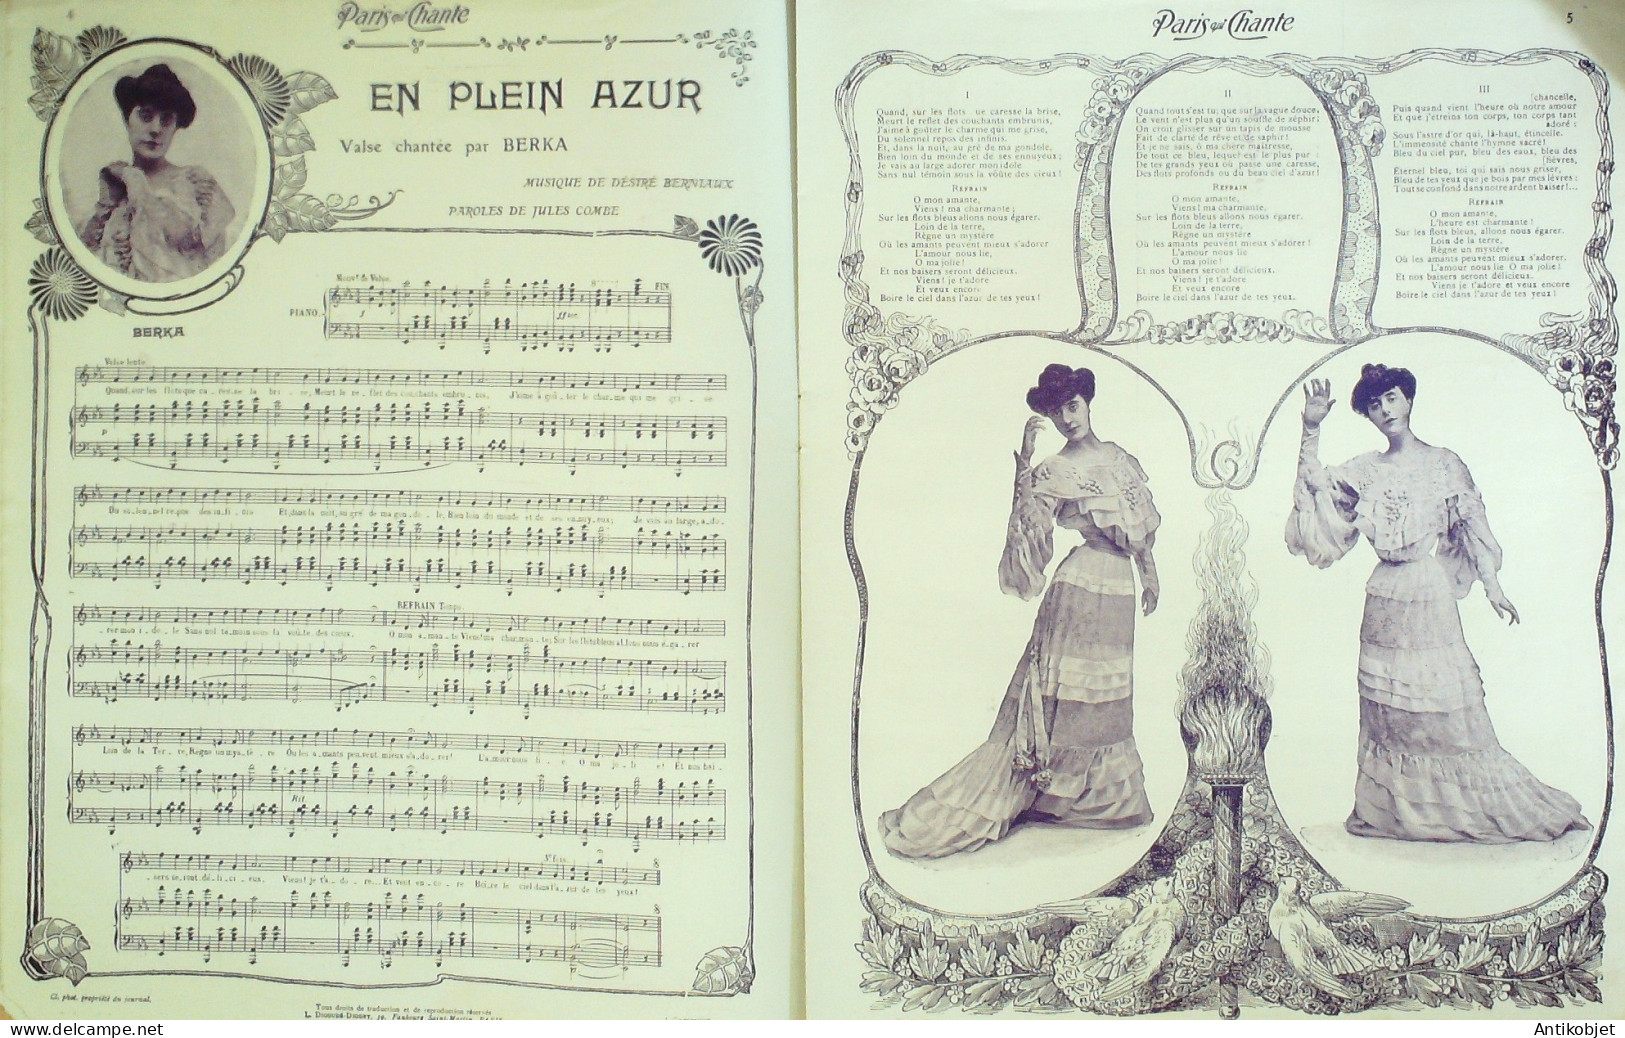 Paris qui Chante
EN PLEIN AZUR
Valse chantée par BERKA
MUSIQUE DE DÉSIRÉ BERNIAUX
PAROLES DE JULES COMBE
BERKA
Mouvt de Valse
PIANO
FIN
Valse lente
Quand, sur les flots que ca_res_se la bri_se, Meurt le re_flet des couchants embru_nis, J'aime à goû_ter le char_me qui me gri_se
Du so_len_nel re_pos des in_fi_nis Et, dans la nuit, au gré de ma gon_do_le, Bien loin du monde et de ses en_nuy_eux; Je vais au large, a_do_
_rer mon i_do_le Sans nul té_moin sous la voû_te des cieux.
REFRAIN Tempo
O mon a_man_te Viens! ma char_man_te; Sur les flots bleus al_lons nous é_ga_rer
Loin de la Ter_re, Règne un mys_tè_re Où les a_mants peu_vent mieux s'a_do_rer! L'a_mour nous li_e O ma jo_li_e! Et nos bai_
Rit.
_sers se_ront dé_li_ci_eux. Viens! je t'a_do_re... Et veux en_co_re Boi_re le ciel dans l'a_zur de tes yeux!
Cl. phot. propriété du journal.
Tous droits de traduction et de reproduction réservés
L. DIGOUDÉ-DIODET, 39, Faubourg Saint-Martin, PARIS
Paris qui Chante
5
I
Quand, sur les flots ue caresse la brise,
Meurt le reflet des couchants embrunis,
J'aime à goûter le charme qui me grise,
Du solennel repos des infinis.
Et, dans la nuit, au gré de ma gondole,
Bien loin du monde et de ses ennuyeux;
Je vais au large adorer mon idole
Sans nul témoin sous la voûte des cieux!
REFRAIN
O mon amante,
Viens! ma charmante;
Sur les flots bleus allons nous égarer.
Loin de la terre,
Règne un mystère
Où les amants peuvent mieux s'adorer
L'amour nous lie,
O ma jolie!
Et nos baisers seront délicieux.
Viens! je t'adore
Et veux encore
Boire le ciel dans l'azur de tes yeux!
II
Quand tout s'est tu; que sur la vague douce,
Le vent n'est plus qu'un souffle de zéphir;
On croit glisser sur un tapis de mousse
Fait de clarté de rêve et de saphir!
Et je ne sais, ô ma chère maîtresse,
De tout ce bleu, lequel est le plus pur:
De tes grands yeux où passe une caresse,
Des flots profonds ou du beau ciel d'azur!
REFRAIN
O mon amante,
Viens! ma charmante,
Sur les flots bleus allons nous égarer.
Loin de la terre,
Règne un mystère
Où les amants peuvent mieux s'adorer!
L'amour nous lie
O ma jolie!
Et nos baisers seront délicieux.
Viens! je t'adore
Et veux encore
Boire le ciel dans l'azur de tes yeux.
III
[chancelle,
Puis quand vient l'heure où notre amour
Et que j'étreins ton corps, ton corps tant
adoré:
Sous l'astre d'or qui, là-haut, étincelle.
L'immensité chante l'hymne sacré!
Bleu du ciel pur, bleu des eaux, bleu des
[fièvres,
Éternel bleu, toi qui sais nous griser,
Bleu de tes yeux que je bois par mes lèvres:
Tout se confond dans notre ardent baiser!...
REFRAIN
O mon amante,
L'heure est charmante!
Sur les flots bleus, allons nous égarer.
Loin de la terre,
Règne un mystère
Où les amants peuvent mieux s'adorer.
L'amour nous lie O ma jolie!
Et nos baisers seront délicieux.
Viens je t'adore et veux encore
Boire le ciel dans l'azur de tes yeux!
Antikobjet